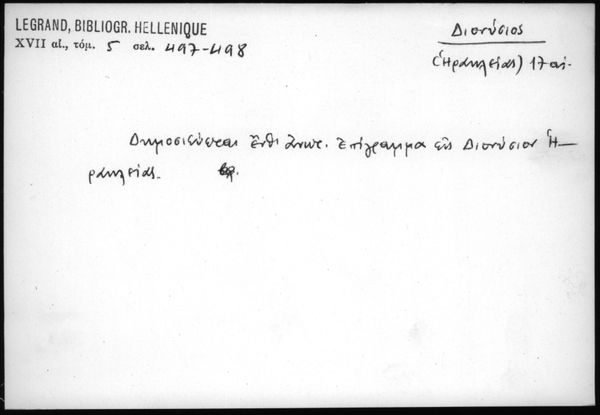 LEGRAND, BIBLIOGR. HELLENIQUE
XVII αἰ., τόμ. 5 σελ. 497-498
Διονύσιος
(Ἡρακλείας) 17 αἰ.
Δημοσιεύεται ἔνθ' ἀνωτ. Ἐπίγραμμα εἰς Διονύσιον Ἡ-
ρακλείας.